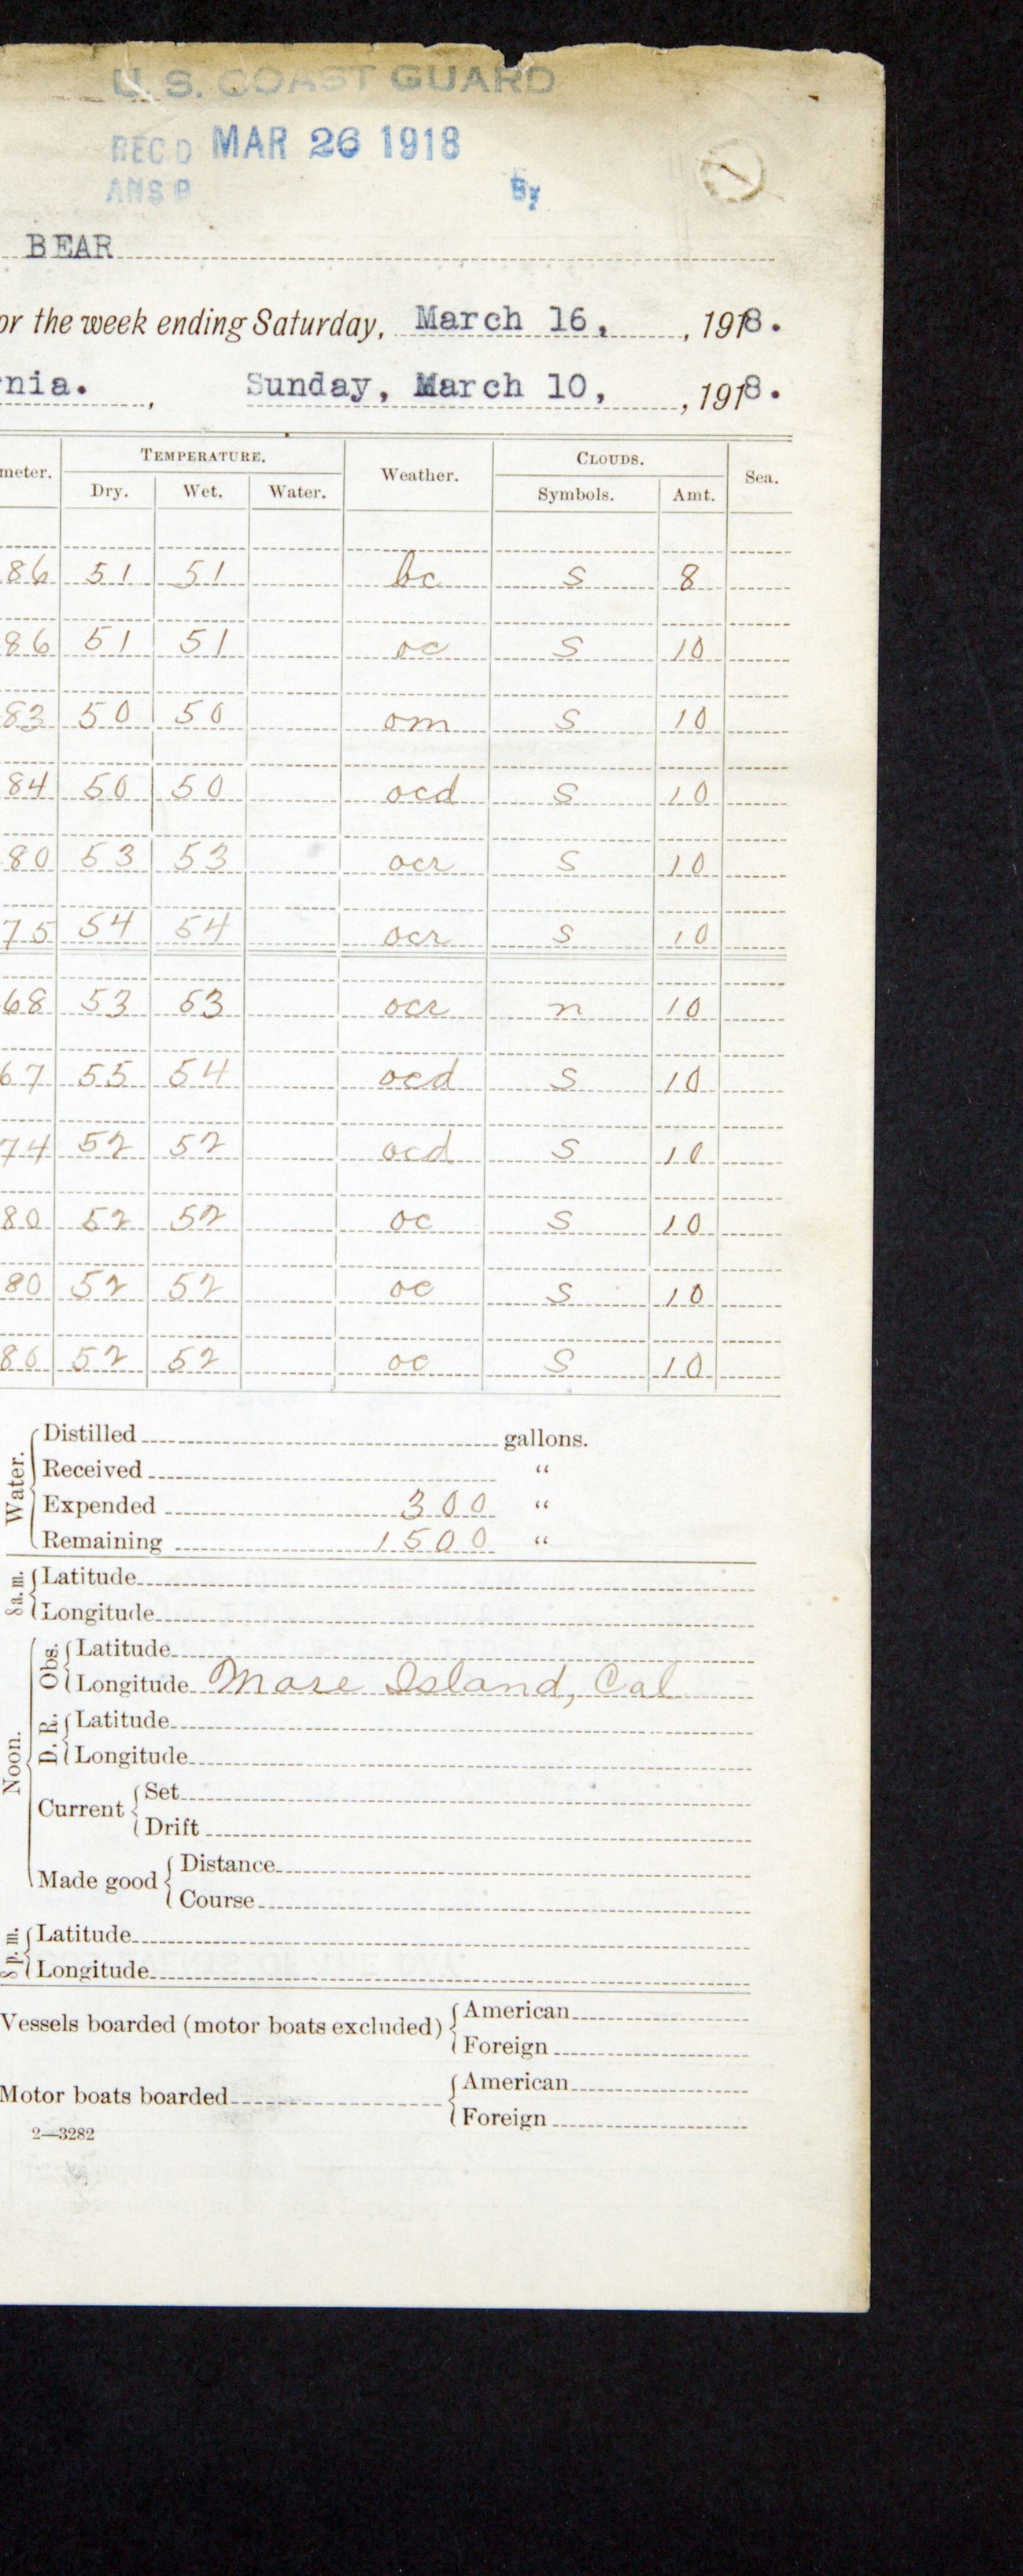 U. S. COAST GUARD
REC'D MAR 26 1918
ANS'D By
BEAR
or the week ending Saturday, March 16, , 1918.
nia. , Sunday, March 10, , 1918.
meter. TEMPERATURE. Weather. CLOUDS. Sea.
Dry. Wet. Water. Symbols. Amt.
86 51 51 bc S 8
86 51 51 oc S 10
83 50 50 om S 10
84 50 50 ocd S 10
80 53 53 ocr S 10
75 54 54 ocr S 10
68 53 53 ocr n 10
67 55 54 ocd S 10
74 52 52 ocd S 10
80 52 52 oc S 10
80 52 52 oc S 10
86 52 52 oc S 10
Water.
Distilled gallons.
Received “
Expended 300 “
Remaining 1500 “
8 a.m.
Latitude
Longitude
Noon.
Obs.
Latitude
Longitude Mare Island, Cal
D. R.
Latitude
Longitude
Current
Set
Drift
Made good
Distance
Course
8 p.m.
Latitude
Longitude
Vessels boarded (motor boats excluded)
American
Foreign
Motor boats boarded
American
Foreign
2—3282